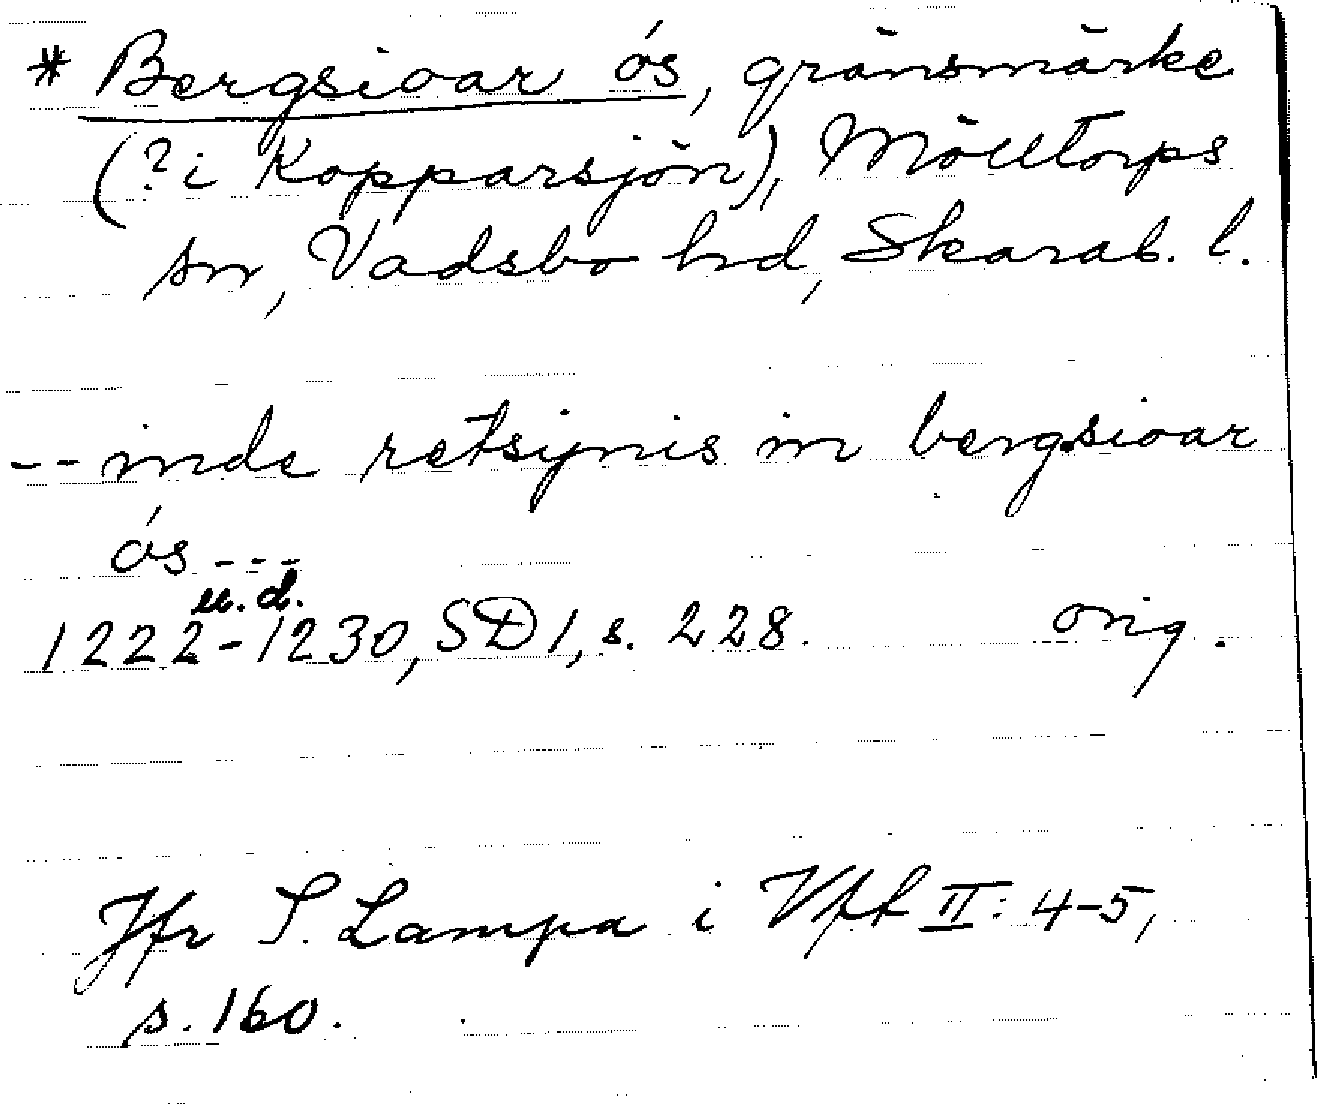 * Bergsioar ós, gränsmärke
(? i Kopparsjön), Mölltorps
sn, Vadsbo hd, Skarab. l.
-- inde retsynis in bergsioar
ós ---
u. d.
1222-1230, SD 1, s. 228. orig.
Jfr S. Lampa i Vfft II: 4-5,
s. 160.